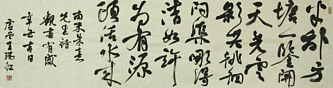 半畝方
塘一鑒開
天光雲
影共徘徊
問渠那得
清如許
為有源
頭活水來
南宋朱熹
先生詩
觀書有感
辛丑吉日